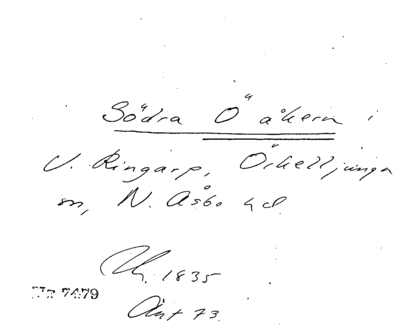 Södra Ö åkern i
V. Ringarp, Örkelljunga
sn, N. Åsbo hd.
Uh. 1835
Ant 73.
Nr 7479